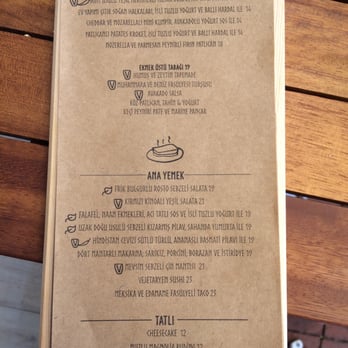 EV YAPIMI ÇITIR SOĞAN HALKALARI, İSLİ TUZLU YOĞURT VE BALLI HARDAL İLE 14
CHEDDAR VE MOZARELLALI MİNİ KUMPİR, AVOKADOLU YOĞURT SOS İLE 14
PATLICANLI PATATES KROKET, İSLİ TUZLU YOĞURT VE BALLI HARDAL İLE 14
MOZERELLA VE PARMESAN PEYNİRLİ FIRIN PATLICAN 18
EKMEK ÜSTÜ TABAĞI 19
HUMUS VE ZEYTİN TAPENADE
MUHAMMARA VE DENİZ FASULYESİ TURŞUSU
AVOKADO SALSA
KÖZ PATLICAN, TAHİN & YOĞURT
KEÇİ PEYNİRİ PATE VE MARİNE PANCAR
ANA YEMEK
FRİK BULGURLU ROSTO SEBZELİ SALATA 19
KIRMIZI KİNOALI YEŞİL SALATA 21
FALAFEL, NAAN EKMEKLERİ, ACI TATLI SOS VE İSLİ TUZLU YOĞURT İLE 19
UZAK DOĞU USULÜ SEBZELİ KIZARMIŞ PİLAV, SAHANDA YUMURTA İLE 19
HİNDİSTAN CEVİZİ SÜTLÜ TÜRLÜ, ANANASLI BASMATİ PİLAVI İLE 19
DÖRT MANTARLI MAKARNA; SARIKIZ, PORCİNİ, BORAZAN VE İSTİRİDYE 19
MEVSİM SEBZELİ ÇİN MANTISI 23
VEJETARYEN SUSHI 23
MEKSİKA VE EDAMAME FASULYELİ TACO 23
TATLI
CHEESECAKE 12